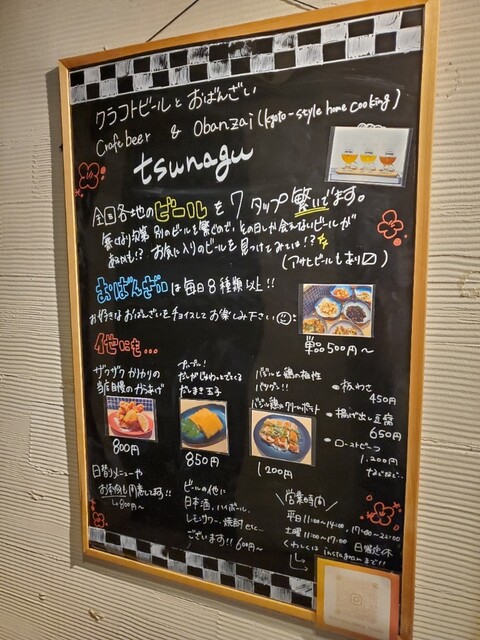 クラフトビールとおばんざい
Craft beer & Obanzai (kyoto-style home cooking)
tsunagu
全国各地のビールを7タップ繋いでます。
無くなり次第別のビールを繋ぐので、その日しか会えないビールが
あるかも!? お気に入りのビールを見つけてみては!?
(アサヒビールもあり〼)
おばんざいは毎日8種類以上!!
お好きなおばんざいをチョイスしてお楽しみ下さい
単品500円~
他にも...
ザクザクカリカリの
当店自慢のからあげ
800円
プルプル!
だしがじゅわっとでてくる
だしまき玉子
850円
バジルと鶏の相性
バツグン!!
バジル鶏のクリームポテト
1,200円
・板わさ
450円
・揚げ出し豆腐
650円
・ローストビーフ
1,200円
などなど…
日替りメニューや
お本日も用意してます!!
800円~
ビールの他に
日本酒、ハイボール、
レモンサワー、焼酎 etc...
ございます!! 600円~
営業時間
平日 11:00~14:00, 17:00~22:00
土曜 11:00~17:00 日曜定休
くわしくは instagram まで!!